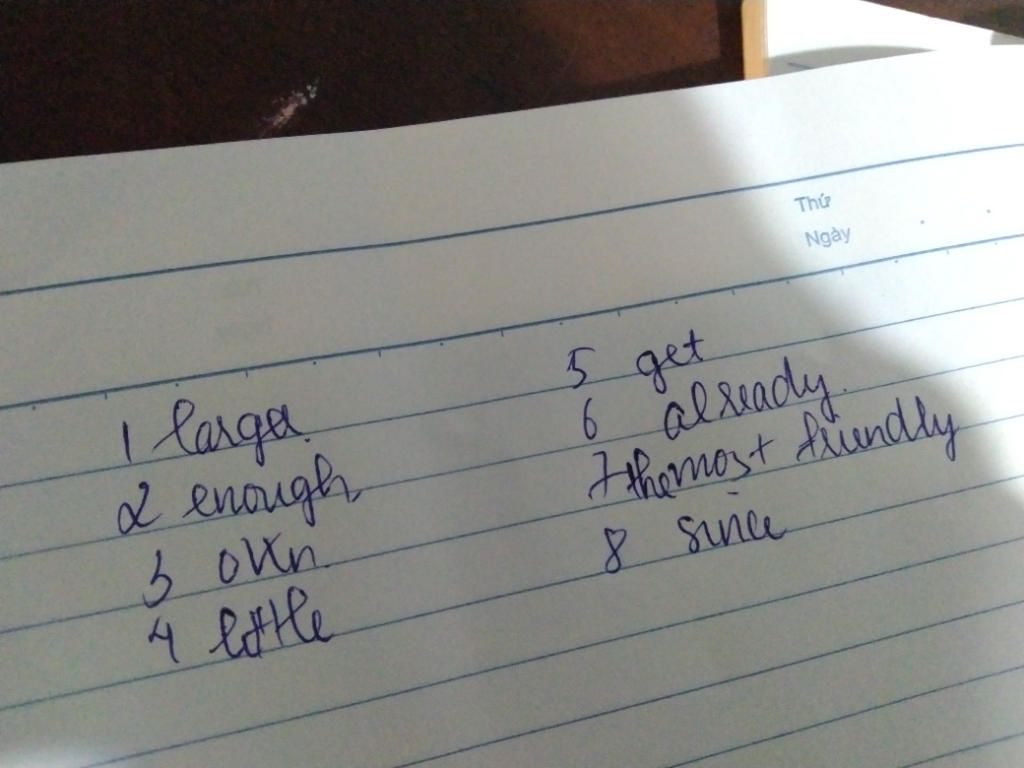 Thứ
Ngày
1 larger
2 enough
3 own
4 little
5 get
6 already
7 the most friendly
8 since